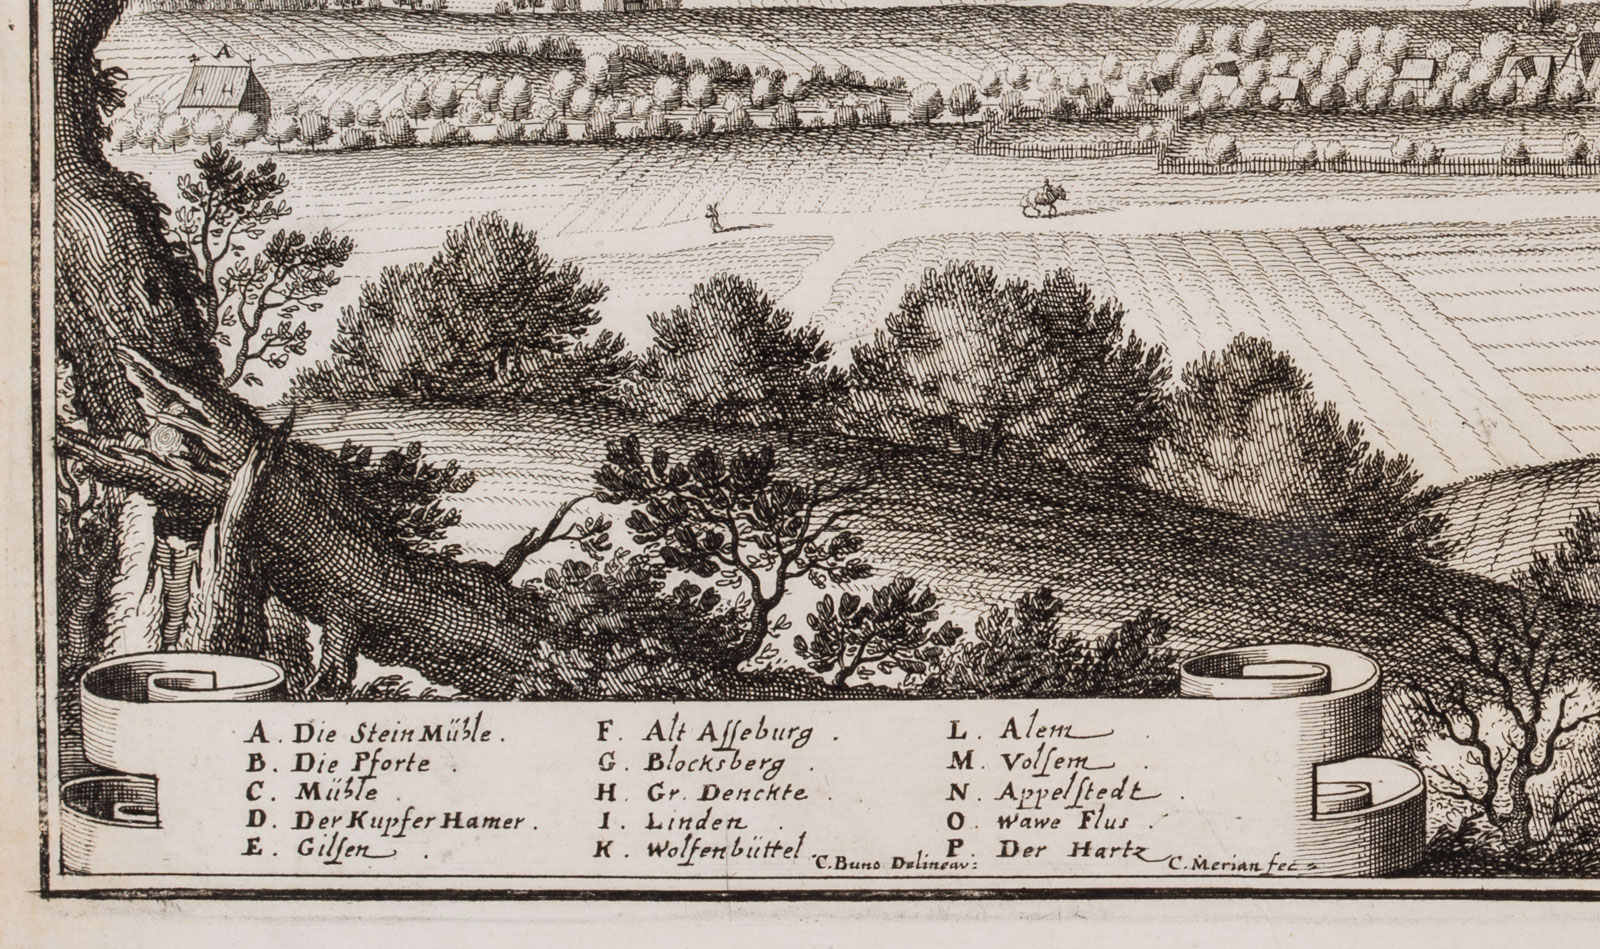 A
A. Die Stein Mühle.
B. Die Pforte.
C. Mühle.
D. Der Kupfer Hamer.
E. Gilſen.
F. Alt Aſſeburg.
G. Blocksberg.
H. Gr. Denckte.
I. Linden.
K. Wolfenbüttel.
L. Alem.
M. Volſem.
N. Appelſtedt.
O. Wawe Flus.
P. Der Hartz
C. Buno Delineav:
C. Merian fec: